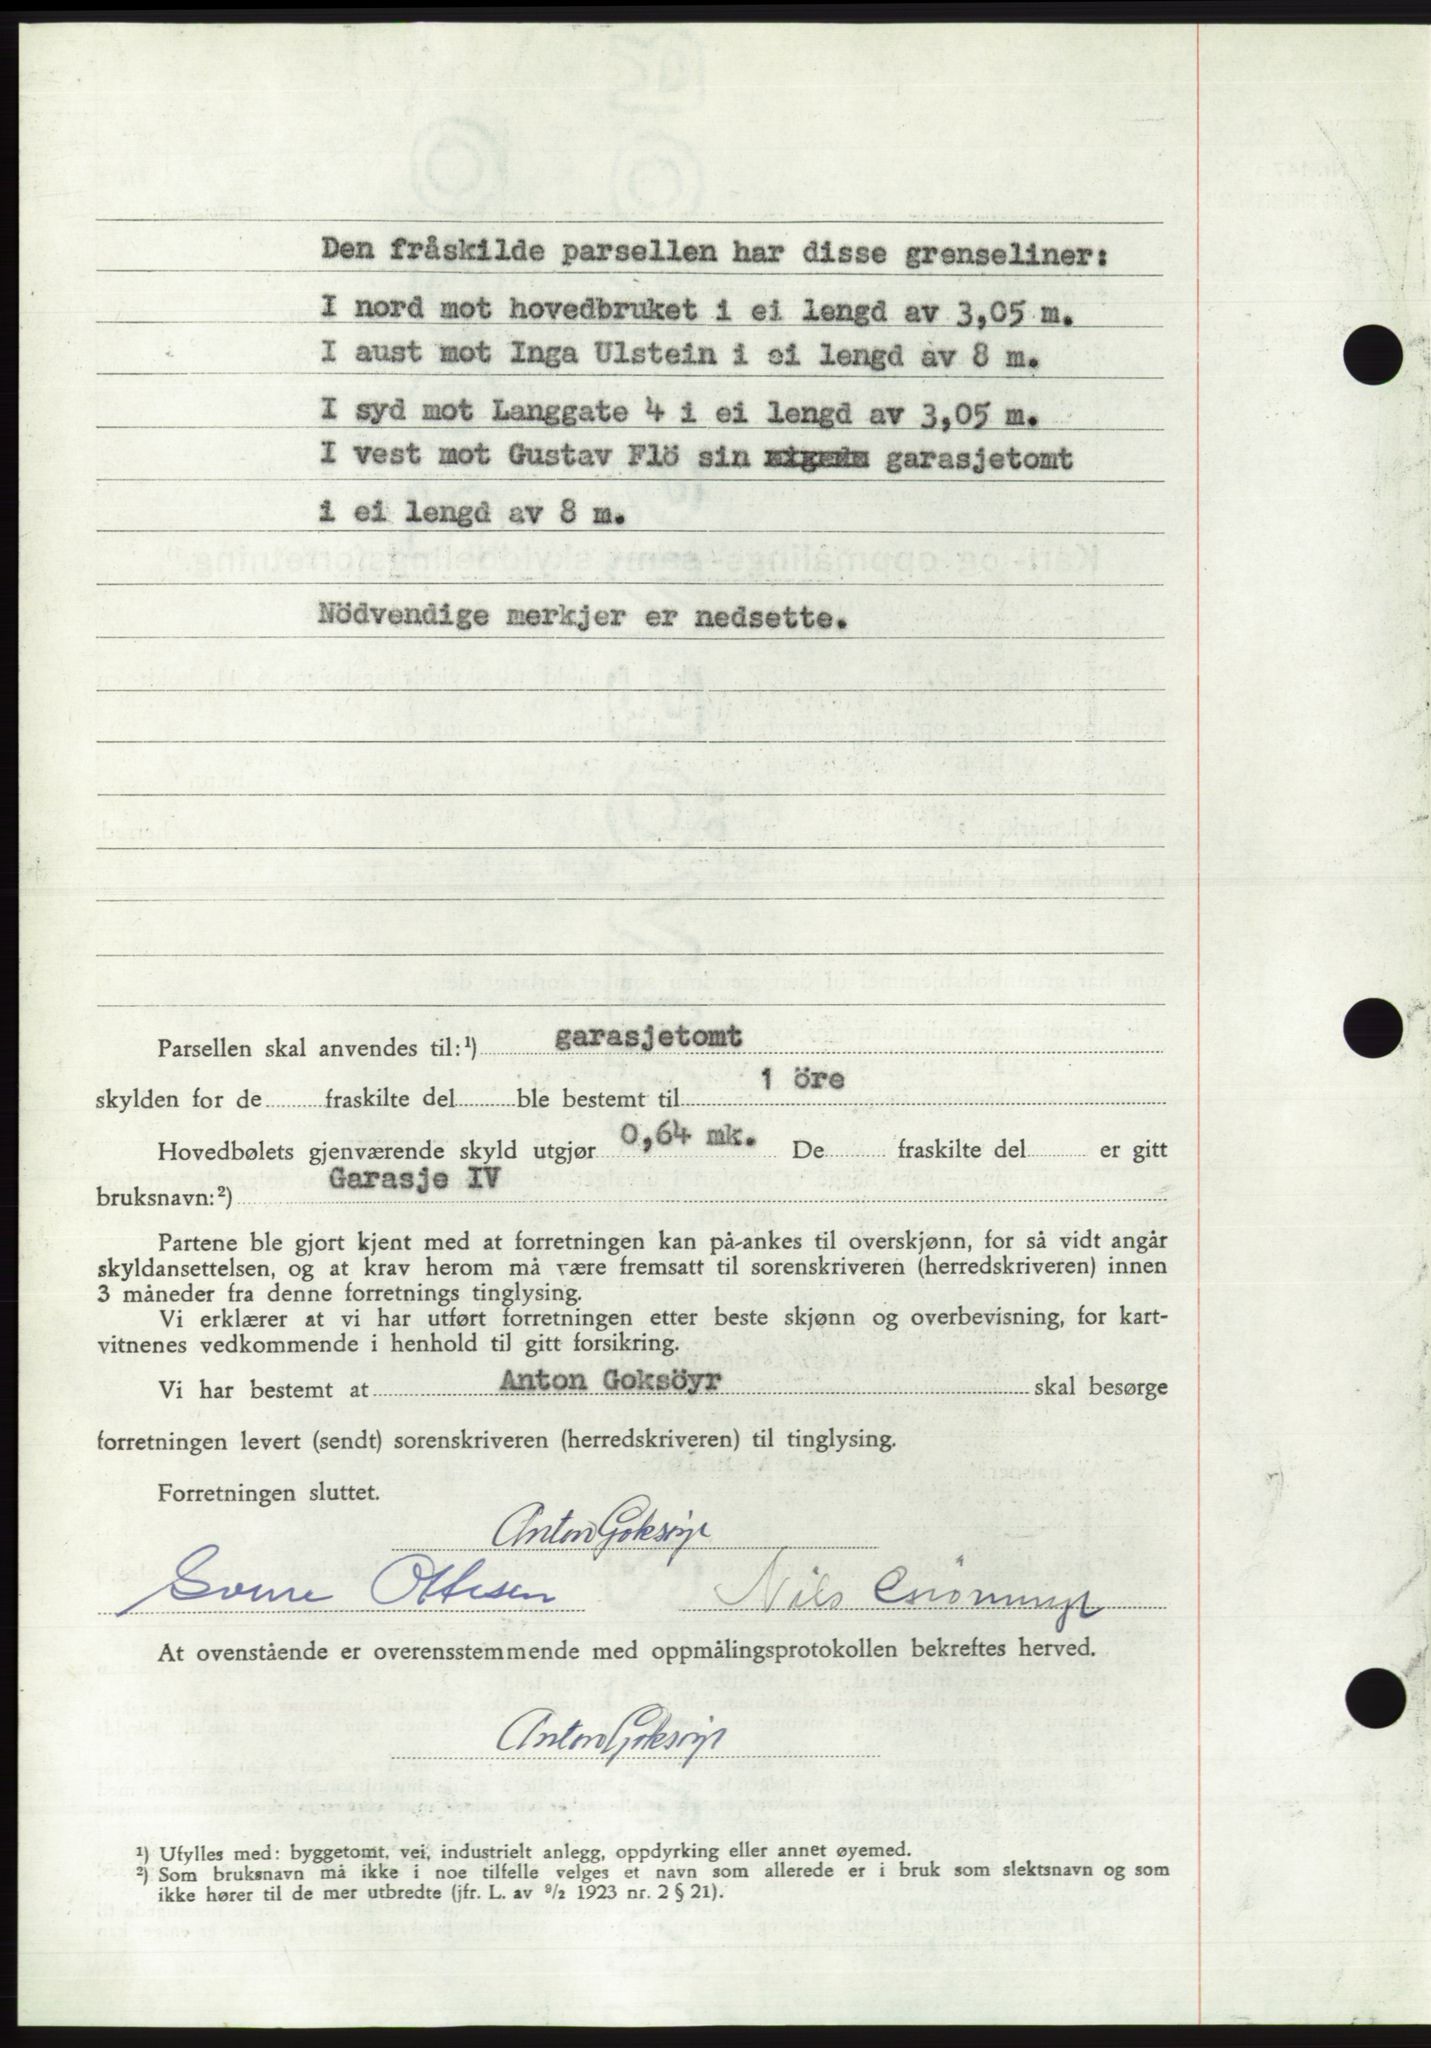 Den fråskilde parsellen har disse grenseliner:
I nord mot hovedbruket i ei lengd av 3,05 m.
I aust mot Inga Ulstein i ei lengd av 8 m.
I syd mot Langgate 4 i ei lengd av 3,05 m.
I vest mot Gustav Flö sin garasjetomt
i ei lengd av 8 m.
Nödvendige merkjer er nedsette.
Parsellen skal anvendes til:¹) garasjetomt
skylden for de fraskilte del ble bestemt til 1 öre
Hovedbølets gjenværende skyld utgjør 0,64 mk. De fraskilte del er gitt
bruksnavn:²) Garasje IV
Partene ble gjort kjent med at forretningen kan på-ankes til overskjønn, for så vidt angår
skyldansettelsen, og at krav herom må være fremsatt til sorenskriveren (herredskriveren) innen
3 måneder fra denne forretnings tinglysing.
Vi erklærer at vi har utført forretningen etter beste skjønn og overbevisning, for kart-
vitnenes vedkommende i henhold til gitt forsikring.
Vi har bestemt at Anton Goksöyr skal besørge
forretningen levert (sendt) sorenskriveren (herredskriveren) til tinglysing.
Forretningen sluttet.
Anton Goksøyr
Sverre Ottesen Nils
At ovenstående er overensstemmende med oppmålingsprotokollen bekreftes herved.
Anton Goksøyr
¹) Ufylles med: byggetomt, vei, industrielt anlegg, oppdyrking eller annet øyemed.
²) Som bruksnavn må ikke i noe tilfelle velges et navn som allerede er i bruk som slektsnavn og som
ikke hører til de mer utbredte (jfr. L. av ⁹/₂ 1923 nr. 2 § 21).